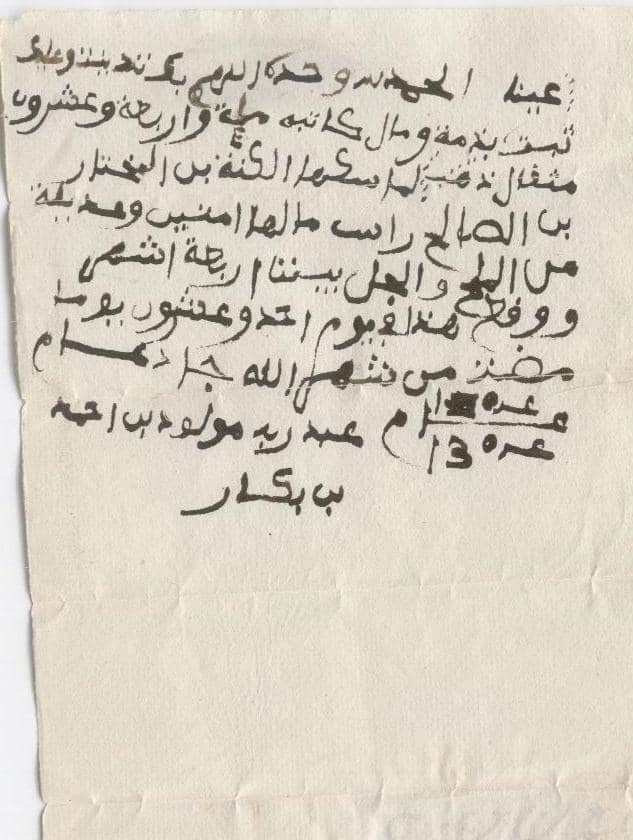 عينا الحمد لله وحده اللهم بك نتدينت وعليك
ثبت بذمة ومال كاتبه مائة واربعة وعشرون
مثقال ذهب لماسكها بن المختار
بن الصالح راس مالها امنين وعديلة
من الملح والجل بيننا اربعة اشهر
ووقع هذا فيوم احد وعشرون يوما
مضت من شهر الله جماد عام
عام عبد ربه مولود بن احمد
13
ب بكار